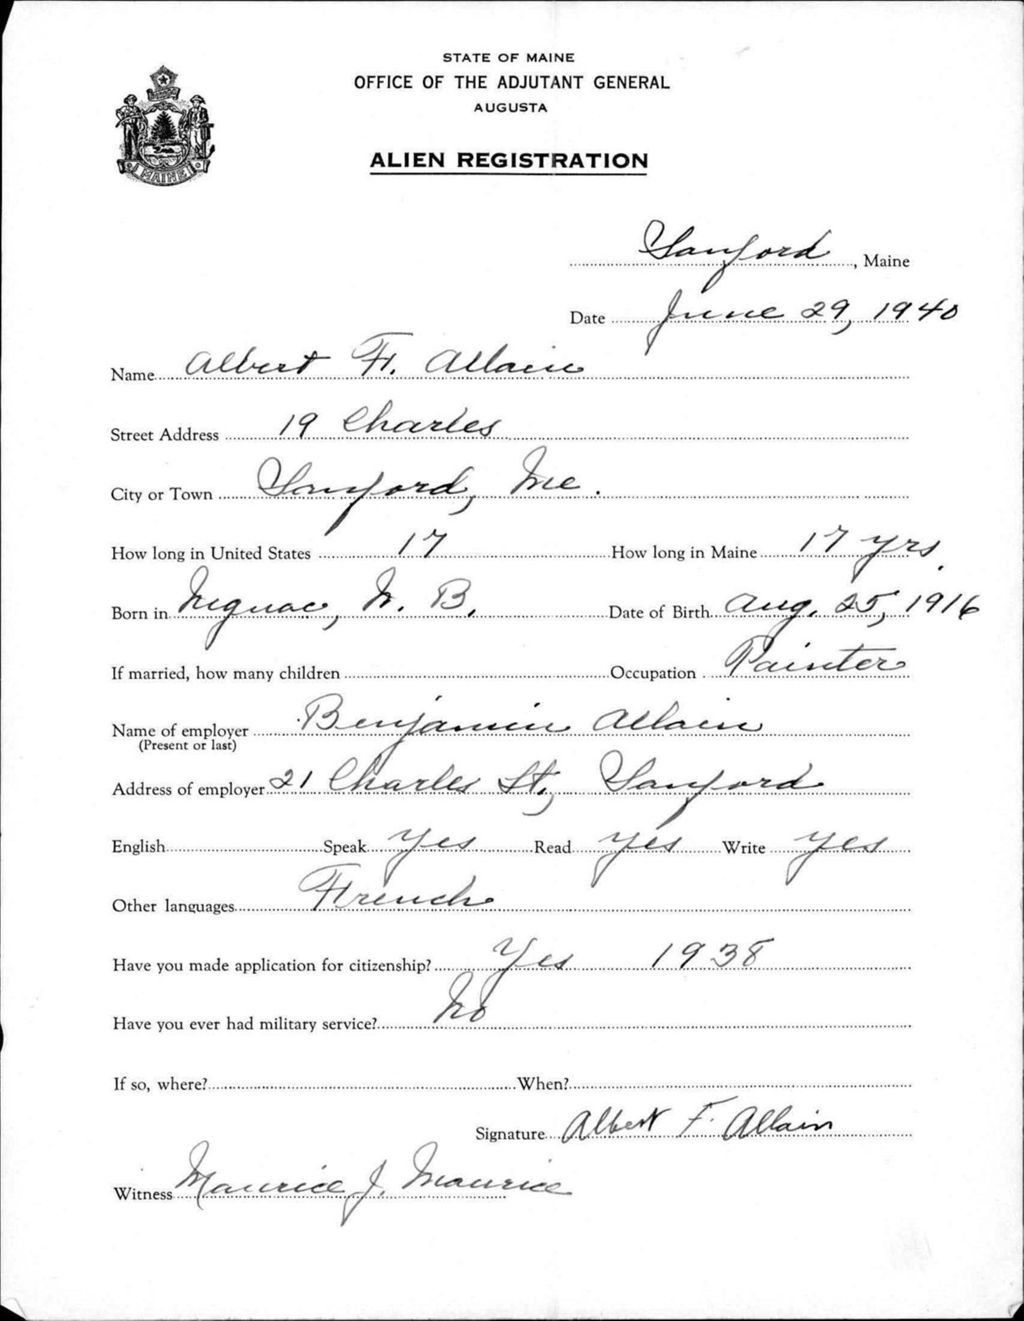 STATE OF MAINE
OFFICE OF THE ADJUTANT GENERAL
AUGUSTA
ALIEN REGISTRATION
MAINE
Sanford, Maine
Date June 29, 1940
Name Albert F. Allain
Street Address 19 Charles
City or Town Sanford, Me.
How long in United States 17 How long in Maine 17 yrs.
Born in Neguac, N. B. Date of Birth Aug. 25, 1916
If married, how many children Occupation Painter
Name of employer Benjamin Allain
(Present or last)
Address of employer 21 Charles St., Sanford
English Speak Yes Read Yes Write Yes
Other languages French
Have you made application for citizenship? Yes 1938
Have you ever had military service? No
If so, where? When?
Signature Albert F. Allain
Witness Maurice J. Maurice